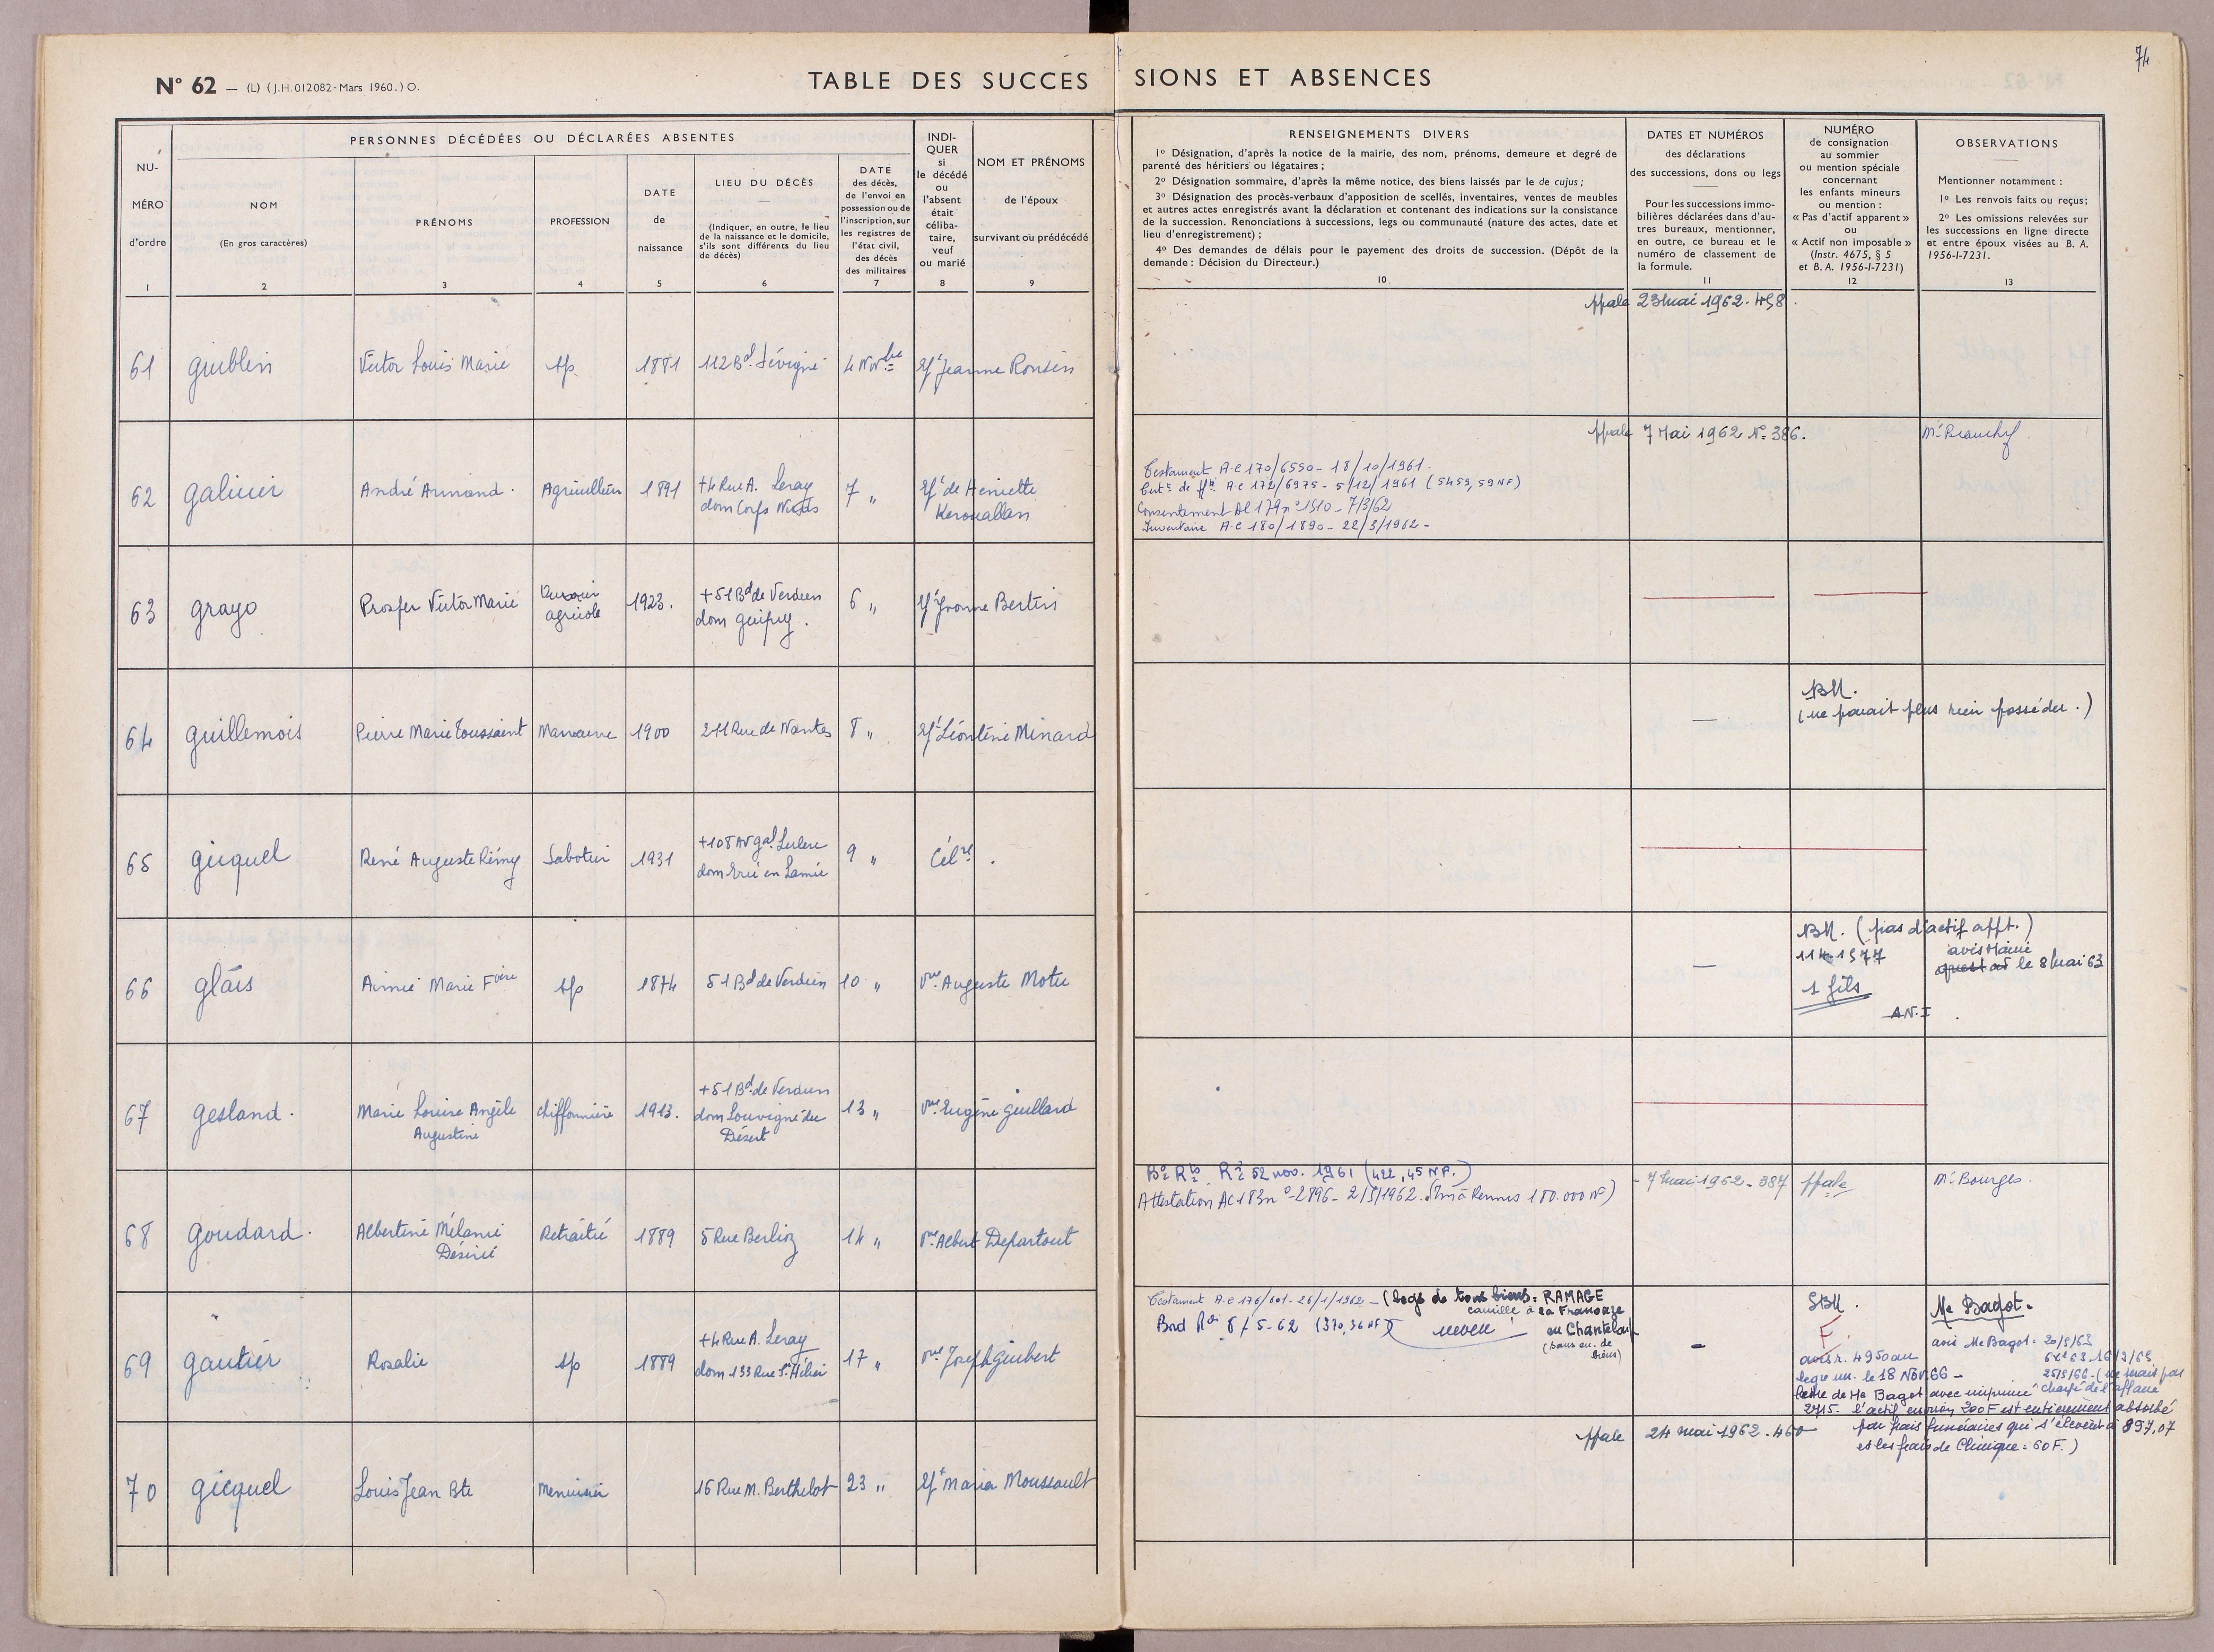 74
N° 62 — (L) (J.H. 012082 - Mars 1960.) O.
TABLE DES SUCCES
SIONS ET ABSENCES
NU-
MÉRO
d'ordre
1
PERSONNES DÉCÉDÉES OU DÉCLARÉES ABSENTES
NOM
(En gros caractères)
2
PRÉNOMS
3
PROFESSION
4
DATE
de
naissance
5
LIEU DU DÉCÈS
(Indiquer, en outre, le lieu
de la naissance et le domicile,
s'ils sont différents du lieu
de décès)
6
DATE
des décès,
de l'envoi en
possession ou de
l'inscription, sur
les registres de
l'état civil,
des décès
des militaires
7
INDI-
QUER
si
le décédé
ou
l'absent
était
céliba-
taire,
veuf
ou marié
8
NOM ET PRÉNOMS
de l'époux
survivant ou prédécédé
9
RENSEIGNEMENTS DIVERS
1° Désignation, d'après la notice de la mairie, des nom, prénoms, demeure et degré de
parenté des héritiers ou légataires ;
2° Désignation sommaire, d'après la même notice, des biens laissés par le de cujus ;
3° Désignation des procès-verbaux d'apposition de scellés, inventaires, ventes de meubles
et autres actes enregistrés avant la déclaration et contenant des indications sur la consistance
de la succession. Renonciations à successions, legs ou communauté (nature des actes, date et
lieu d'enregistrement) ;
4° Des demandes de délais pour le payement des droits de succession. (Dépôt de la
demande : Décision du Directeur.)
10
DATES ET NUMÉROS
des déclarations
des successions, dons ou legs
Pour les successions immo-
bilières déclarées dans d'au-
tres bureaux, mentionner,
en outre, ce bureau et le
numéro de classement de
la formule.
11
NUMÉRO
de consignation
au sommier
ou mention spéciale
concernant
les enfants mineurs
ou mention :
« Pas d'actif apparent »
ou
« Actif non imposable »
(Instr. 4675, § 5
et B. A. 1956-I-7231)
12
OBSERVATIONS
Mentionner notamment :
1° Les renvois faits ou reçus;
2° Les omissions relevées sur
les successions en ligne directe
et entre époux visées au B. A.
1956-I-7231.
13
ppale 23 mai 1962 - 458.
61 guiblin Victor Louis Marie sp 1881 112 Bd. Sévigné 4 Nvbre Jeanne Ronsin
ppale 7 Mai 1962 N° 386.
62 galivier André Armand. Agriculteur 1891 +4 Rue A. Leray 7 " de Henriette
dom Corps Nuds Kerouallan
Testament A.C 170/6550 - 18/10/1961.
A.C 172/6975 - 5/12/1961 (5459,59 NF)
Consentement AC 179 n° 1510 - 7/3/62
Inventaire A.C 180/1890 - 22/3/1962 -
63 grayo Prosper Victor Marie Ouvrier 1923. +51 Bd de Verdun 6 " Yvonne Bertin
agricole dom guipry.
64 guillemois Pierre Marie Toussaint Manœuvre 1900 241 Rue de Nantes 8 " Léontine Minard
BM.
(ne parait plus rien posséder.)
65 gicquel René Auguste Rémy Sabotier 1931 +108 Av gal Leclerc 9 " Célre.
dom Ercé en Lamée
66 glais Aimée Marie Foise sp 1874 51 Bd de Verdun 10 " vve Auguste Motu
BM. (pas d'actif appt.)
114.1577 avis Mairie
le 8 mai 63
1 fils
A.N.I
67 gesland. Marie Louise Angèle Chiffonnière 1913. +51 Bd. de Verdun 13 " vve Eugène guillard
Augustine dom Louvigné du
Désert
68 goudard. Albertine Mélanie Retraitée 1889 5 Rue Berlioz 14 " vve Albert Departout
Désirée
52 nov. 1961 (422,45 NF.)
Attestation AC 183 n° 2896 - 2/5/1962. Rennes 180.000 NF)
- 7 mai 1962 - 387 ppale Me Bourges.
69 gautier Rosalie sp 1889 +4 Rue A. Leray 17 " vve Joseph guibert
dom 133 Rue St. Hélier
Testament A.C 176/601 - 26/1/1962 - (legs de tous biens: RAMAGE
camille à la Franouze
en Chantelou
(sans en. de
biens)
Bnd 8/5-62 (370,36 NF)
SBM. Me Bagot.
F. avis Me Bagot = 20/5/63
avis r. 4950 au
le 18 NOV. 66 -
lettre de Me Bagot avec imprimé chargé de l'affaire
2715. l'actif environ 200 F est entièrement absorbé
par frais funéraires qui s'élèvent à 897,07
et les frais de Clinique = 60 F.)
ppale 24 mai 1962. 460
70 gicquel Louis Jean Bte Menuisier 16 Rue M. Berthelot 23 " Maria Moussault